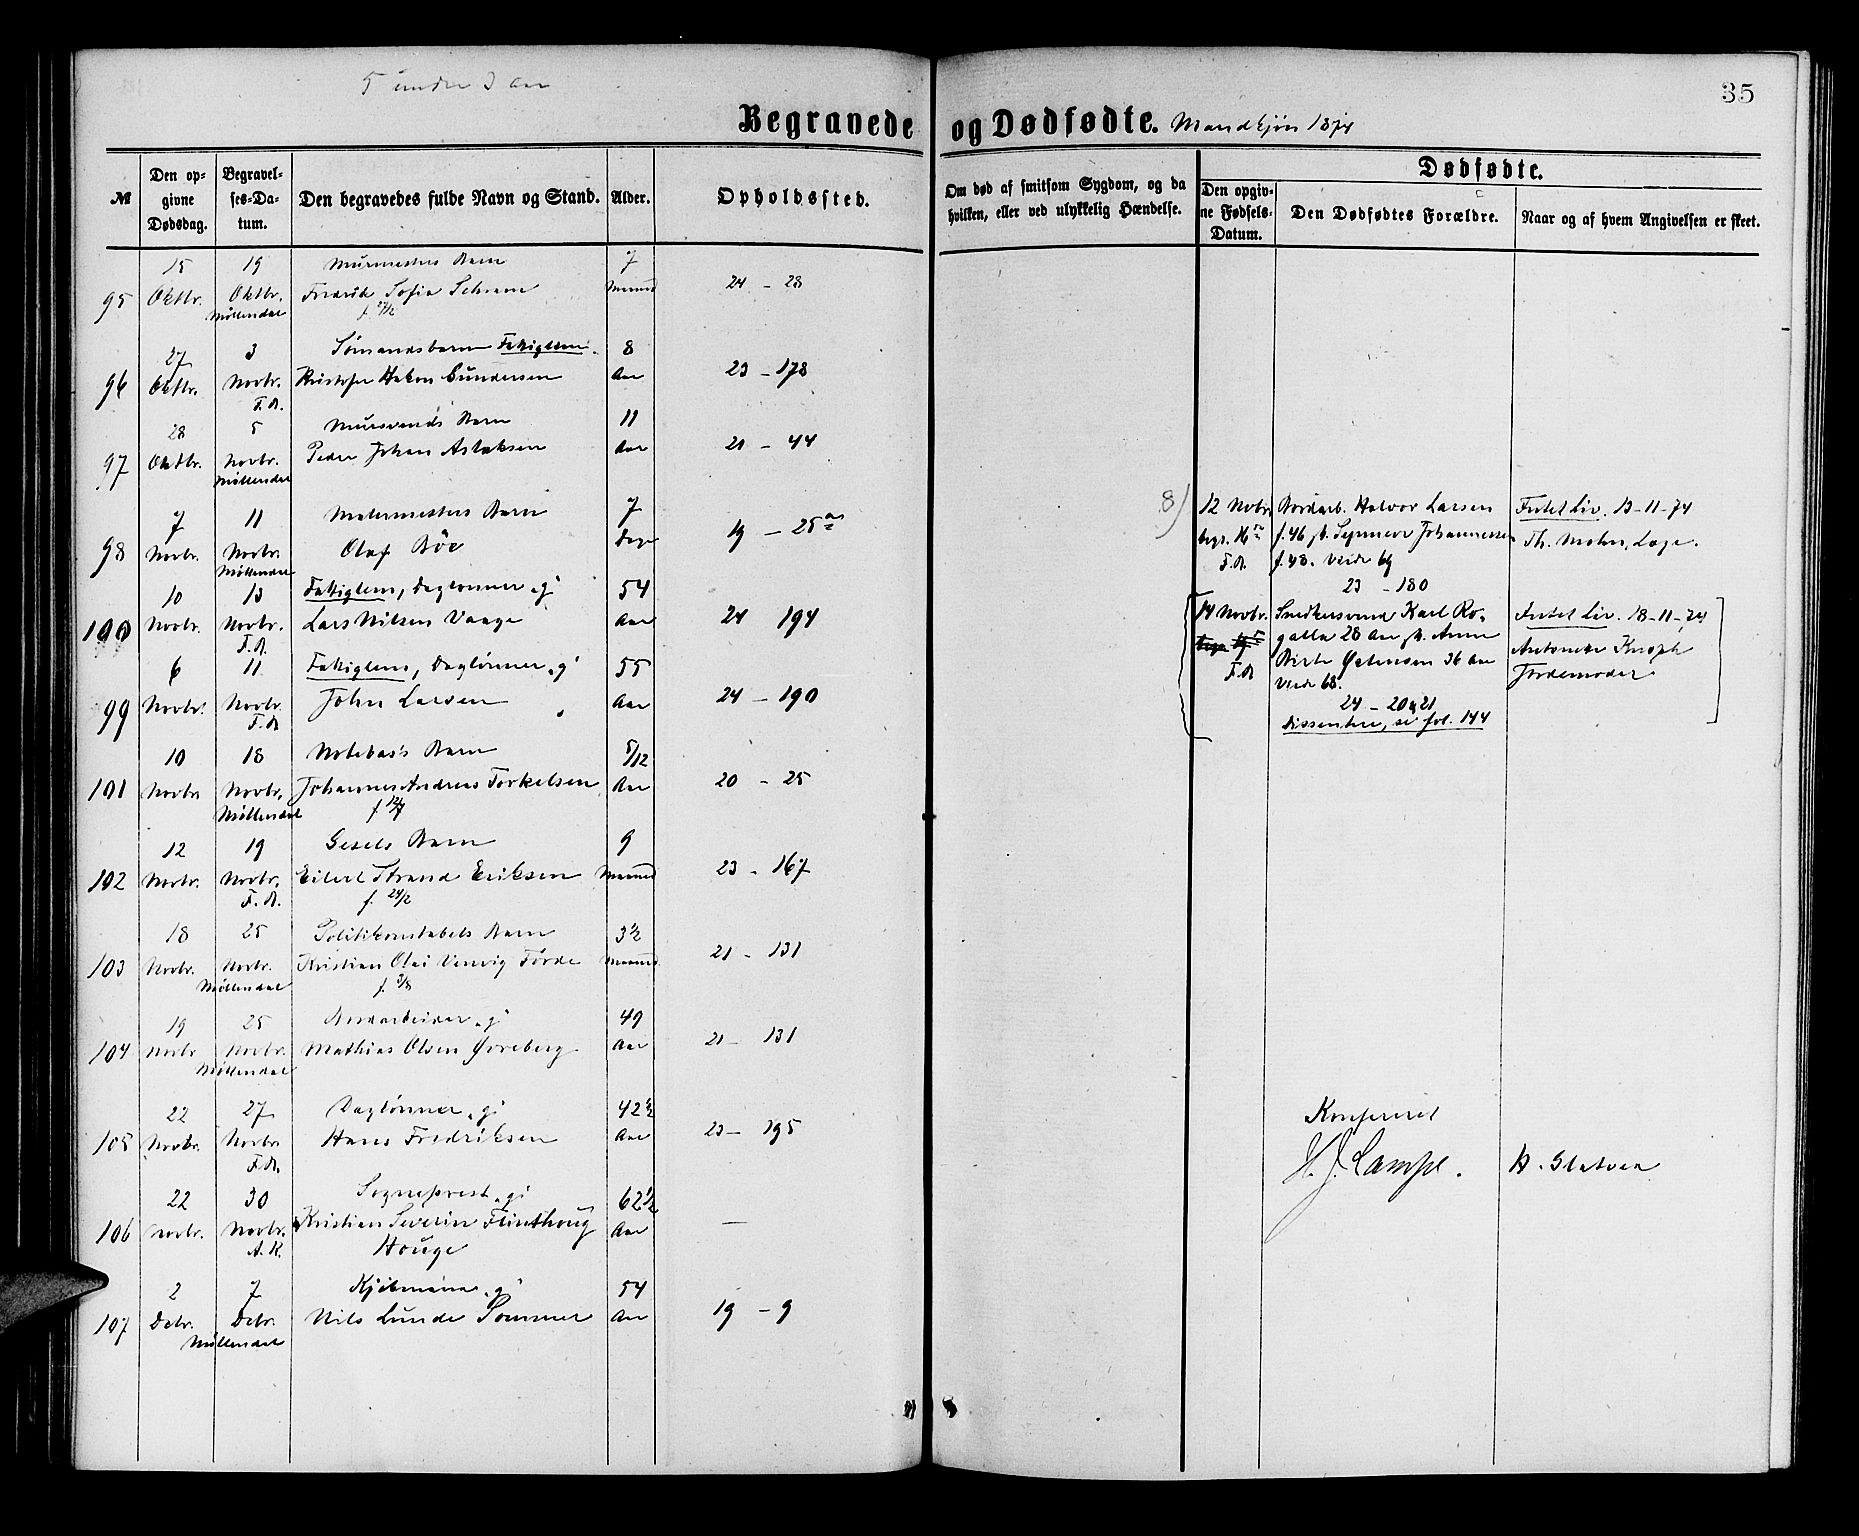 5 under 3 Aar
35
Begravede og Dødfødte. Mandkjøn 1874
№
Den opgivne Dødsdag.
Begravelses-Datum.
Den begravedes fulde Navn og Stand.
Alder.
Opholdssted.
Om død af smitsom Sygdom, og da hvilken, eller ved ulykkelig Hændelse.
Dødfødte.
Den opgivne Fødsels-Datum.
Den Dødfødtes Forældre.
Naar og af hvem Angivelsen er skeet.
15 19 Murmesters Barn 7
95 Oktbr. Oktbr. Fredrik Sofus Schram Maaned 24 - 28
Møllendal
27 3 Sømandsbarn Fattiglem. 8
96 Oktbr. Novbr. Kristofer Hakon Gundersen Aar 23 - 178
F.A.
28 5 Mursvends Barn 11
97 Oktbr. Novbr. Peder Johan Aslaksen Aar 21 - 44
Møllendal
7 11 Malermesters Barn 7
98 Novbr. Novbr. Olaf Bøe Dage 19 - 25a
Møllendal
10 13 Fattiglem, Daglønner, gj 54
100 Novbr. Novbr. Lars Nilsen Vaage Aar 24 194
F.A.
6 11 Fattiglem, Daglønner, gj 55
99 Novbr. Novbr. John Larsen Aar 24 - 190
F.A.
10 18 Notebas's Barn 5/12
101 Novbr. Novbr. Johannes Andreas Torkelsen Aar 20 - 25
Møllendal f. 12/7
12 19 Gesels Barn 9
102 Novbr. Novbr. Eilert Strand Eriksen Maaned 23 - 167
F.A. f. 24/2
18 25 Politikonstabels Barn 3½
103 Novbr. Novbr. Kristian Olai Førde Maaned 21 - 131
Møllendal f. 3/8
19 25 Jordarbeider, gj 49
104 Novbr. Novbr. Mathias Olsen Øvreberg Aar 21 - 131
Møllendal
22 27 Daglønner, gj 42½
105 Novbr. Novbr. Hans Fredriksen Aar 23 - 195
F.A.
22 30 Sogneprest, gj 62½
106 Novbr. Novbr. Kristian Severin Flinthoug Aar —
A.K. Houge
2 7 Kjøbmand, gj 54
107 Debr. Debr. Nils Lunde Sommer Aar 19 - 9
Møllendal
8) 12 Novbr. Jordarb. Halvor Larsen Intet Liv. 13-11-74
begr. 16 f. 46 Johannessen Th. Mohn, Læge.
F.A. f. 48. Viede 69
23 - 180
14 Novbr. Snedkersvend Karl Ro- Intet Liv. 18-11-74
galla 28 Aar Anne Antonette Knoph
F.A. Birte Østensen 36 Aar Jordemoder
Viede 68.
24 - 20 & 21
Dissentere, se fol. 144
Konfereret
H. J. Lampe. A. Slatven